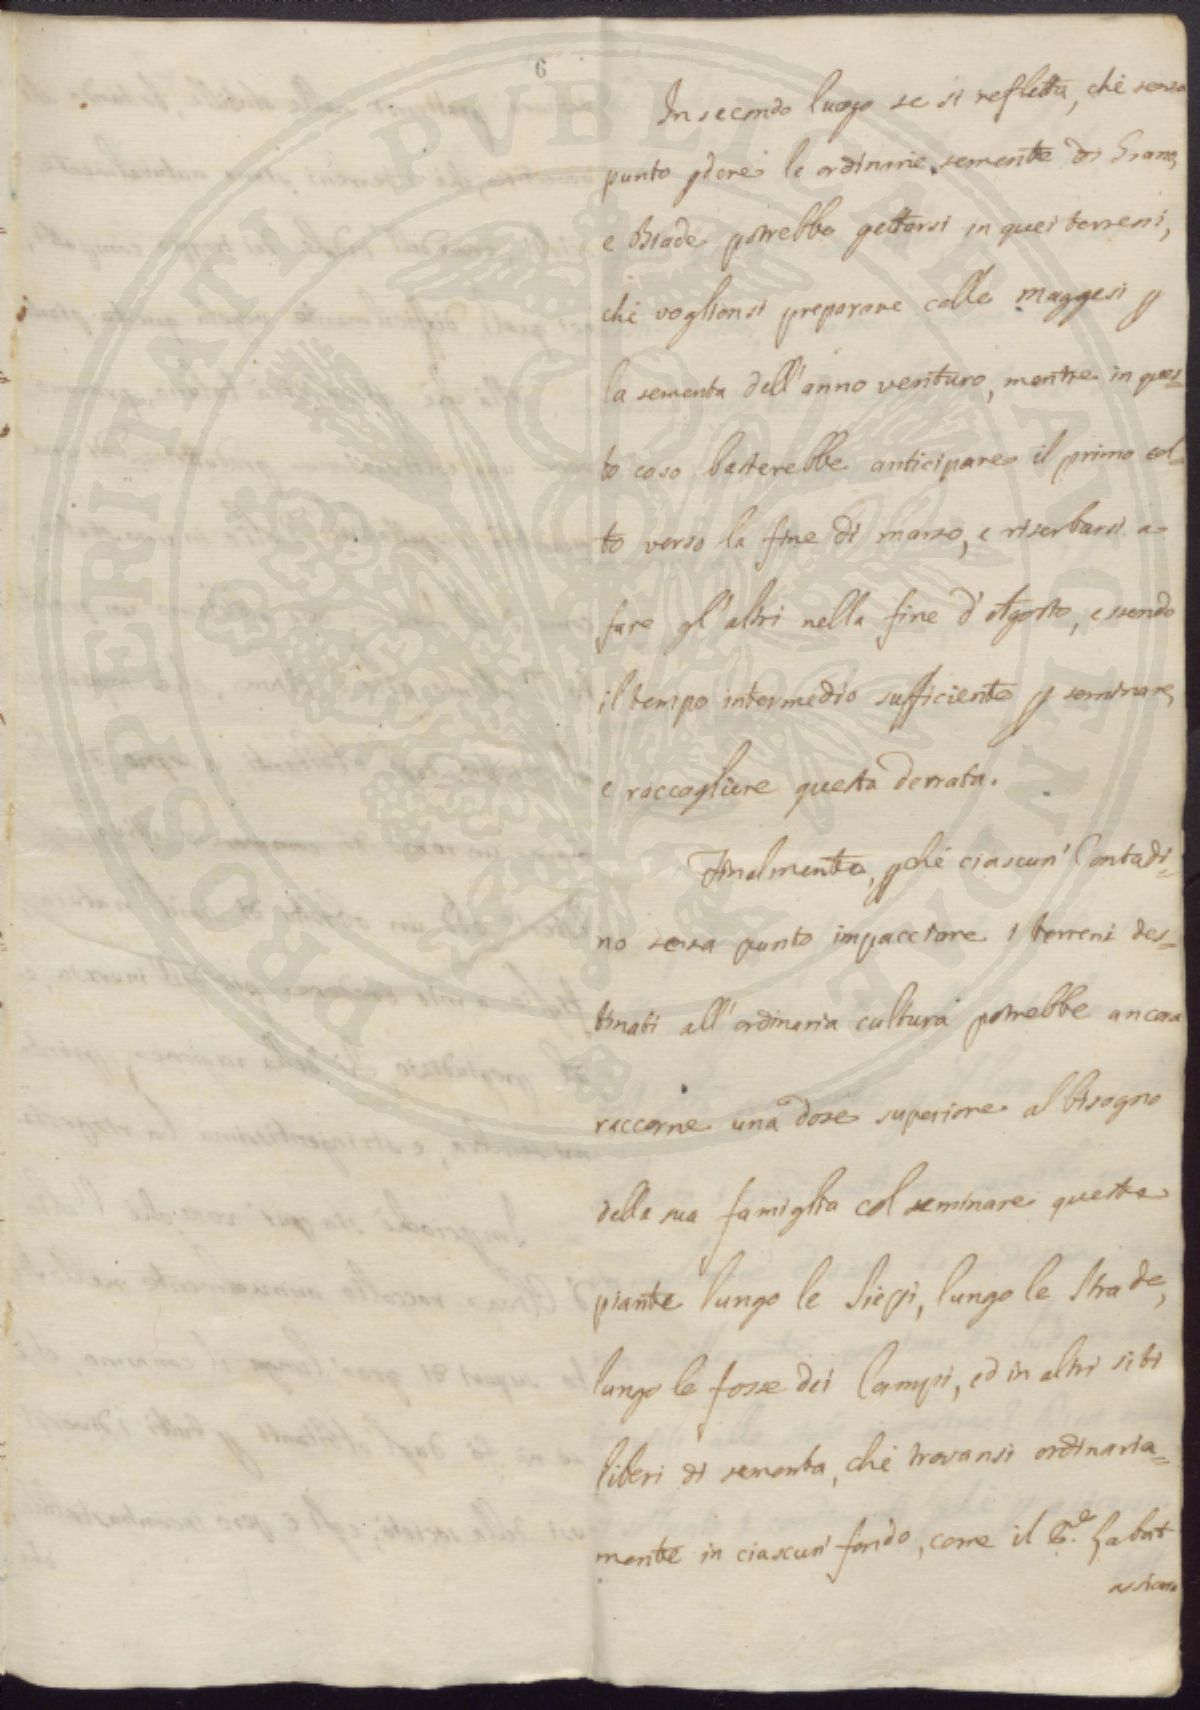 6
In secondo luogo se si refletta, che senza
punto pdere le ordinarie semente di Grano,
e Biade potrebbe gettarsi in quei terreni,
che voglionsi preparare colle maggesi p
la sementa dell'anno venturo, mentre in ques=
to caso basterebbe anticipare il primo col=
to verso la fine di marzo, e riserbarsi a
fare gl'altri nella fine d'Agosto, essendo
il tempo intermedio sufficiente p seminare,
e raccogliere questa derrata.
Finalmente, pchè ciascun' Contadi=
no senza punto impacciare i terreni des=
tinati all'ordinaria cultura potrebbe ancora
raccorne una dose superiore al bisogno
della sua famiglia col seminare queste
piante lungo le Siepi, lungo le Strade,
lungo le fosse dei Campi, ed in altri siti
liberi di sementa, che trovansi ordinaria=
mente in ciascun' fondo, come il
assicura
PROSPERITATI PVBLICAE AVGENDAE